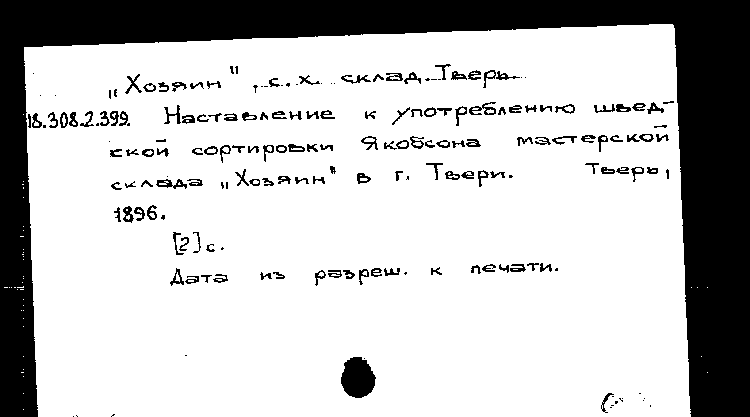 „Хозяин", с.х. склад. Тверь.
18.308.2.399. Наставление к употреблению швед-
ской сортировки Якобсона мастерской
склада „Хозяин" в г. Твери. Тверь,
1896.
[2] с.
Дата из разреш. к печати.